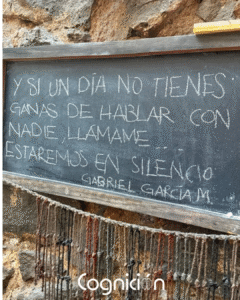 Y SI UN DÍA NO TIENES
GANAS DE HABLAR CON
NADIE, LLÁMAME...
ESTAREMOS EN SILENCIO
GABRIEL GARCÍA M.
Cognición